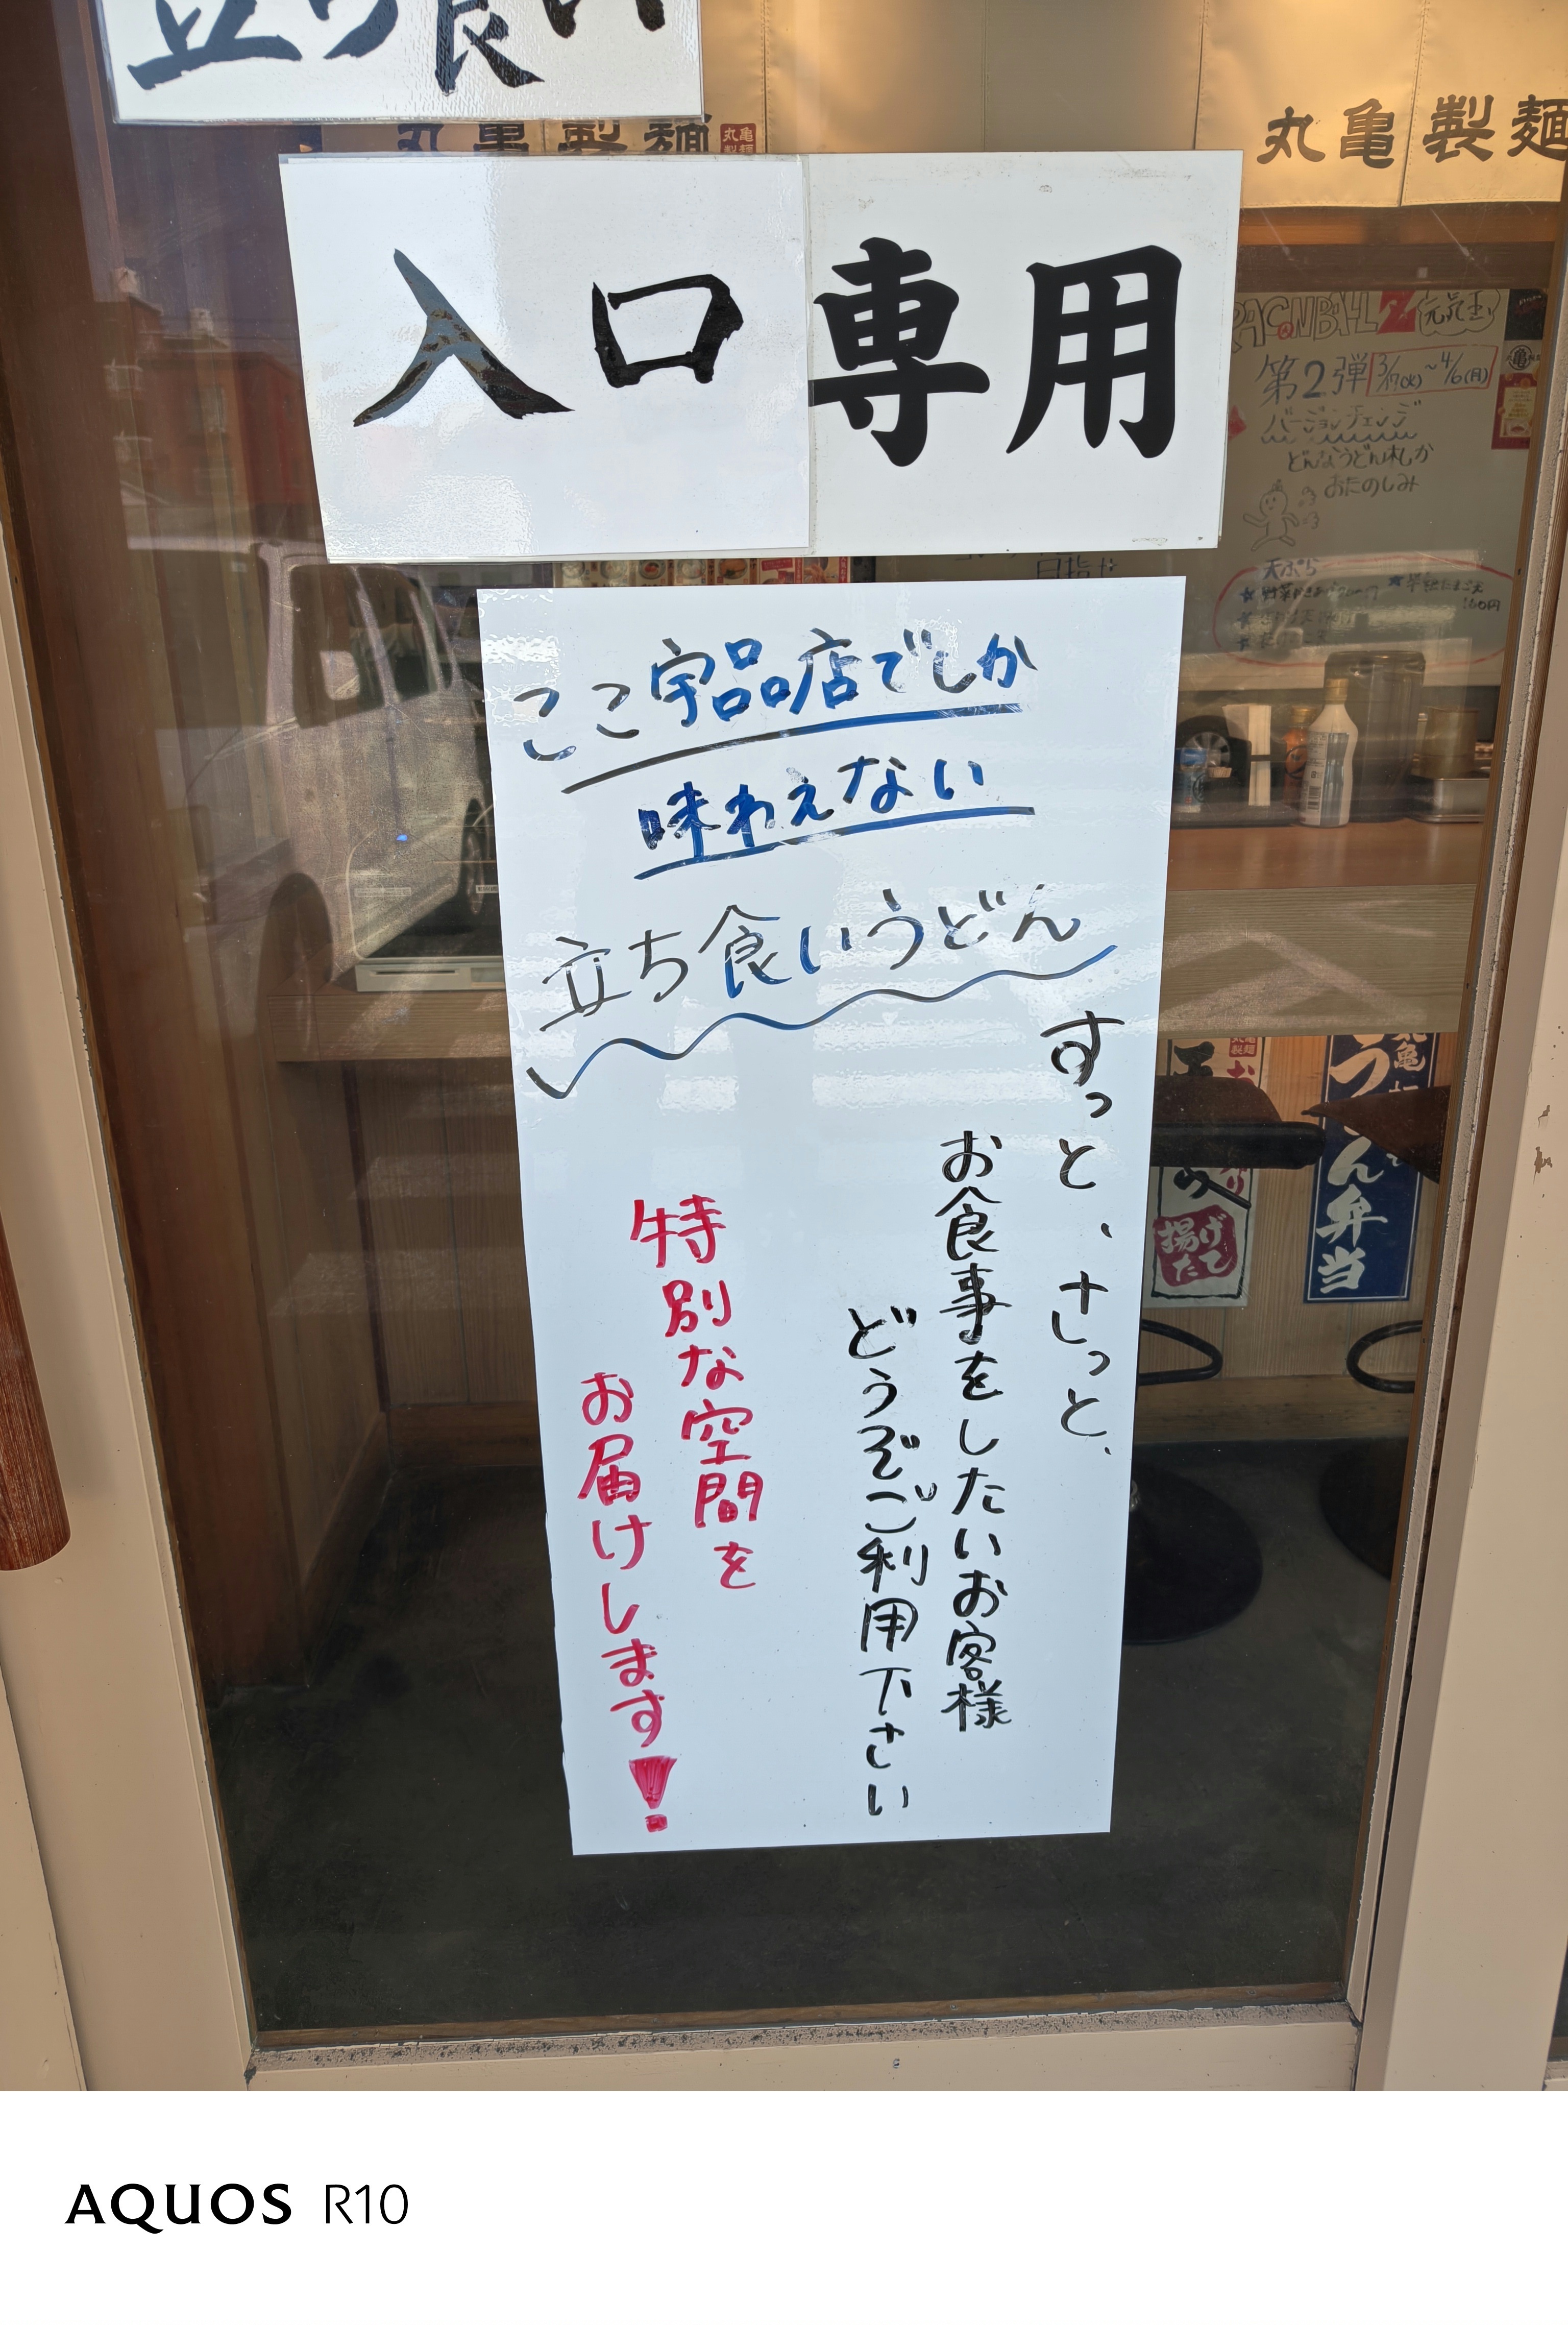 立ち食い
丸亀製麺
丸亀製麺
丸亀製麺
入口専用
DRAGONBALL Z 元気玉
第2弾 3/17(火)~4/6(月)
バージョンチェンジ
どんなうどん札か
おたのしみ
天ぷら
160円
目指せ
ここ宇品店でしか
味わえない
立ち食いうどん
すっと、さっと、
お食事をしたいお客様
どうぞご利用下さい
特別な空間を
お届けします!
揚げたて
丸亀
うどん弁当
AQUOS R10